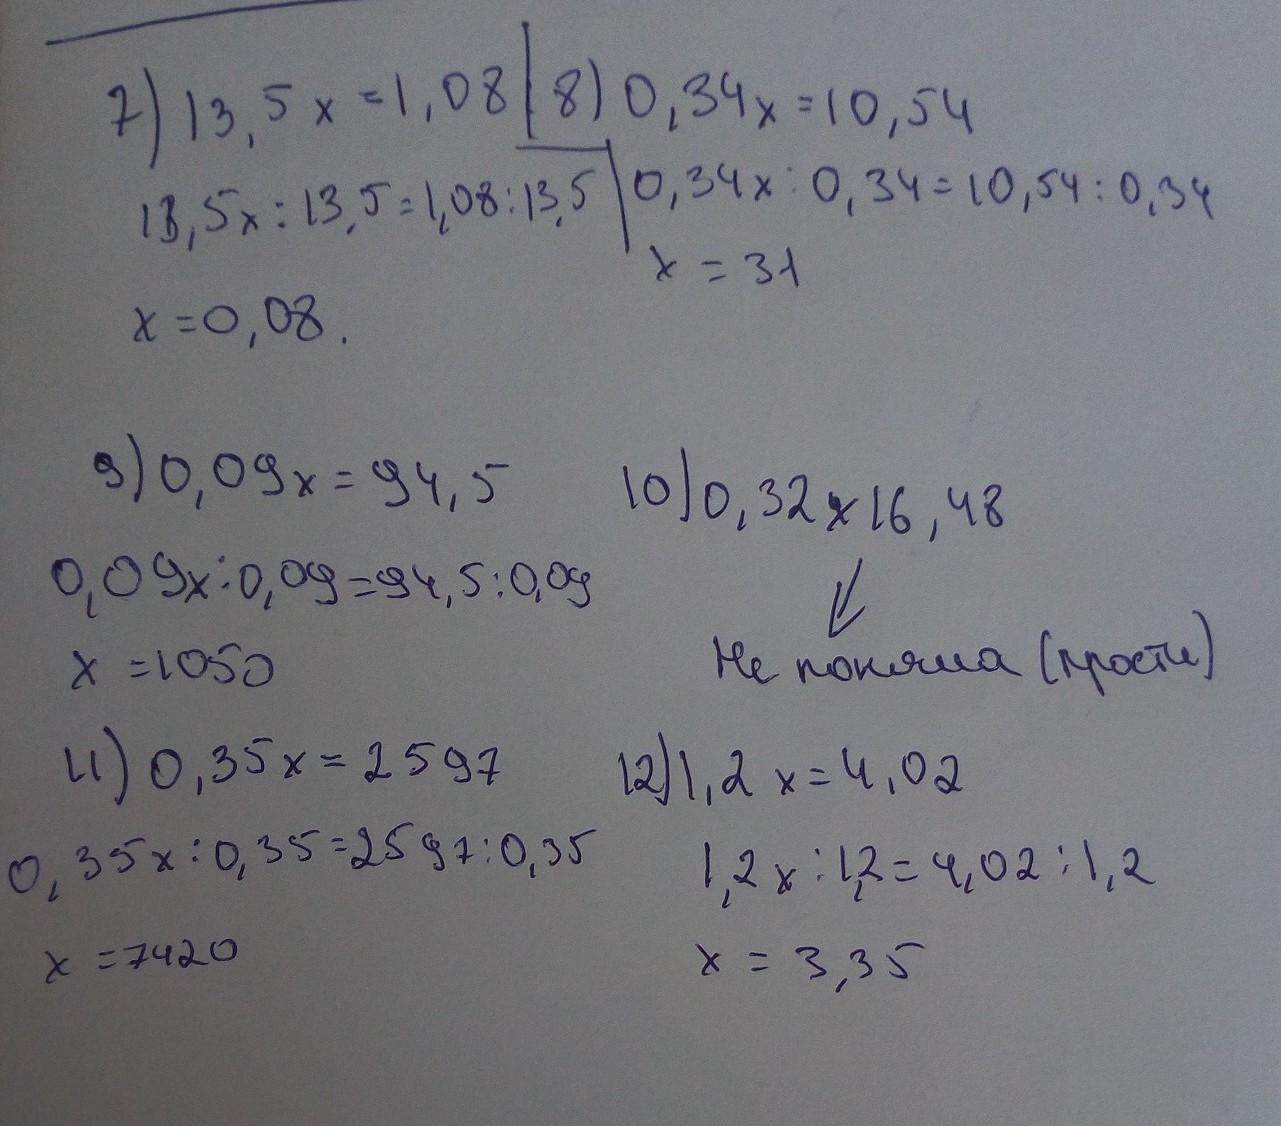 7) 13,5x=1,08
13,5x:13,5=1,08:13,5
x=0,08.
8) 0,34x=10,54
0,34x:0,34=10,54:0,34
x=31
9) 0,09x=94,5
0,09x:0,09=94,5:0,09
x=1050
10) 0,32x16,48
Не поняла (прости)
11) 0,35x=2597
0,35x:0,35=2597:0,35
x=7420
12) 1,2x=4,02
1,2x:1,2=4,02:1,2
x=3,35